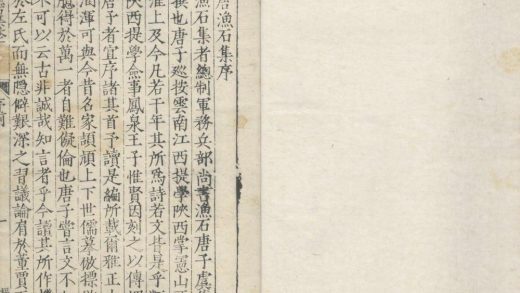 唐漁石集序
漁石集者總制軍務兵部尚書漁石唐子虞
撰也唐子巡按雲南江西提學陝西掌憲山
淮上及今凡若干年其所為詩若文皆是乎
陝西提學僉事鳳泉王子惟賢因刻之以傳
予者宜序諸其首予讀是編所載爾雅正
渾渾可與今昔名家頡頏上下世儒摹倣標
得於萬一者自難儗倫也唐子嘗言文不
不可以云古非誠哉知言者乎今讀其所作
於左氏而無隱僻艱深之習議論有於董賈